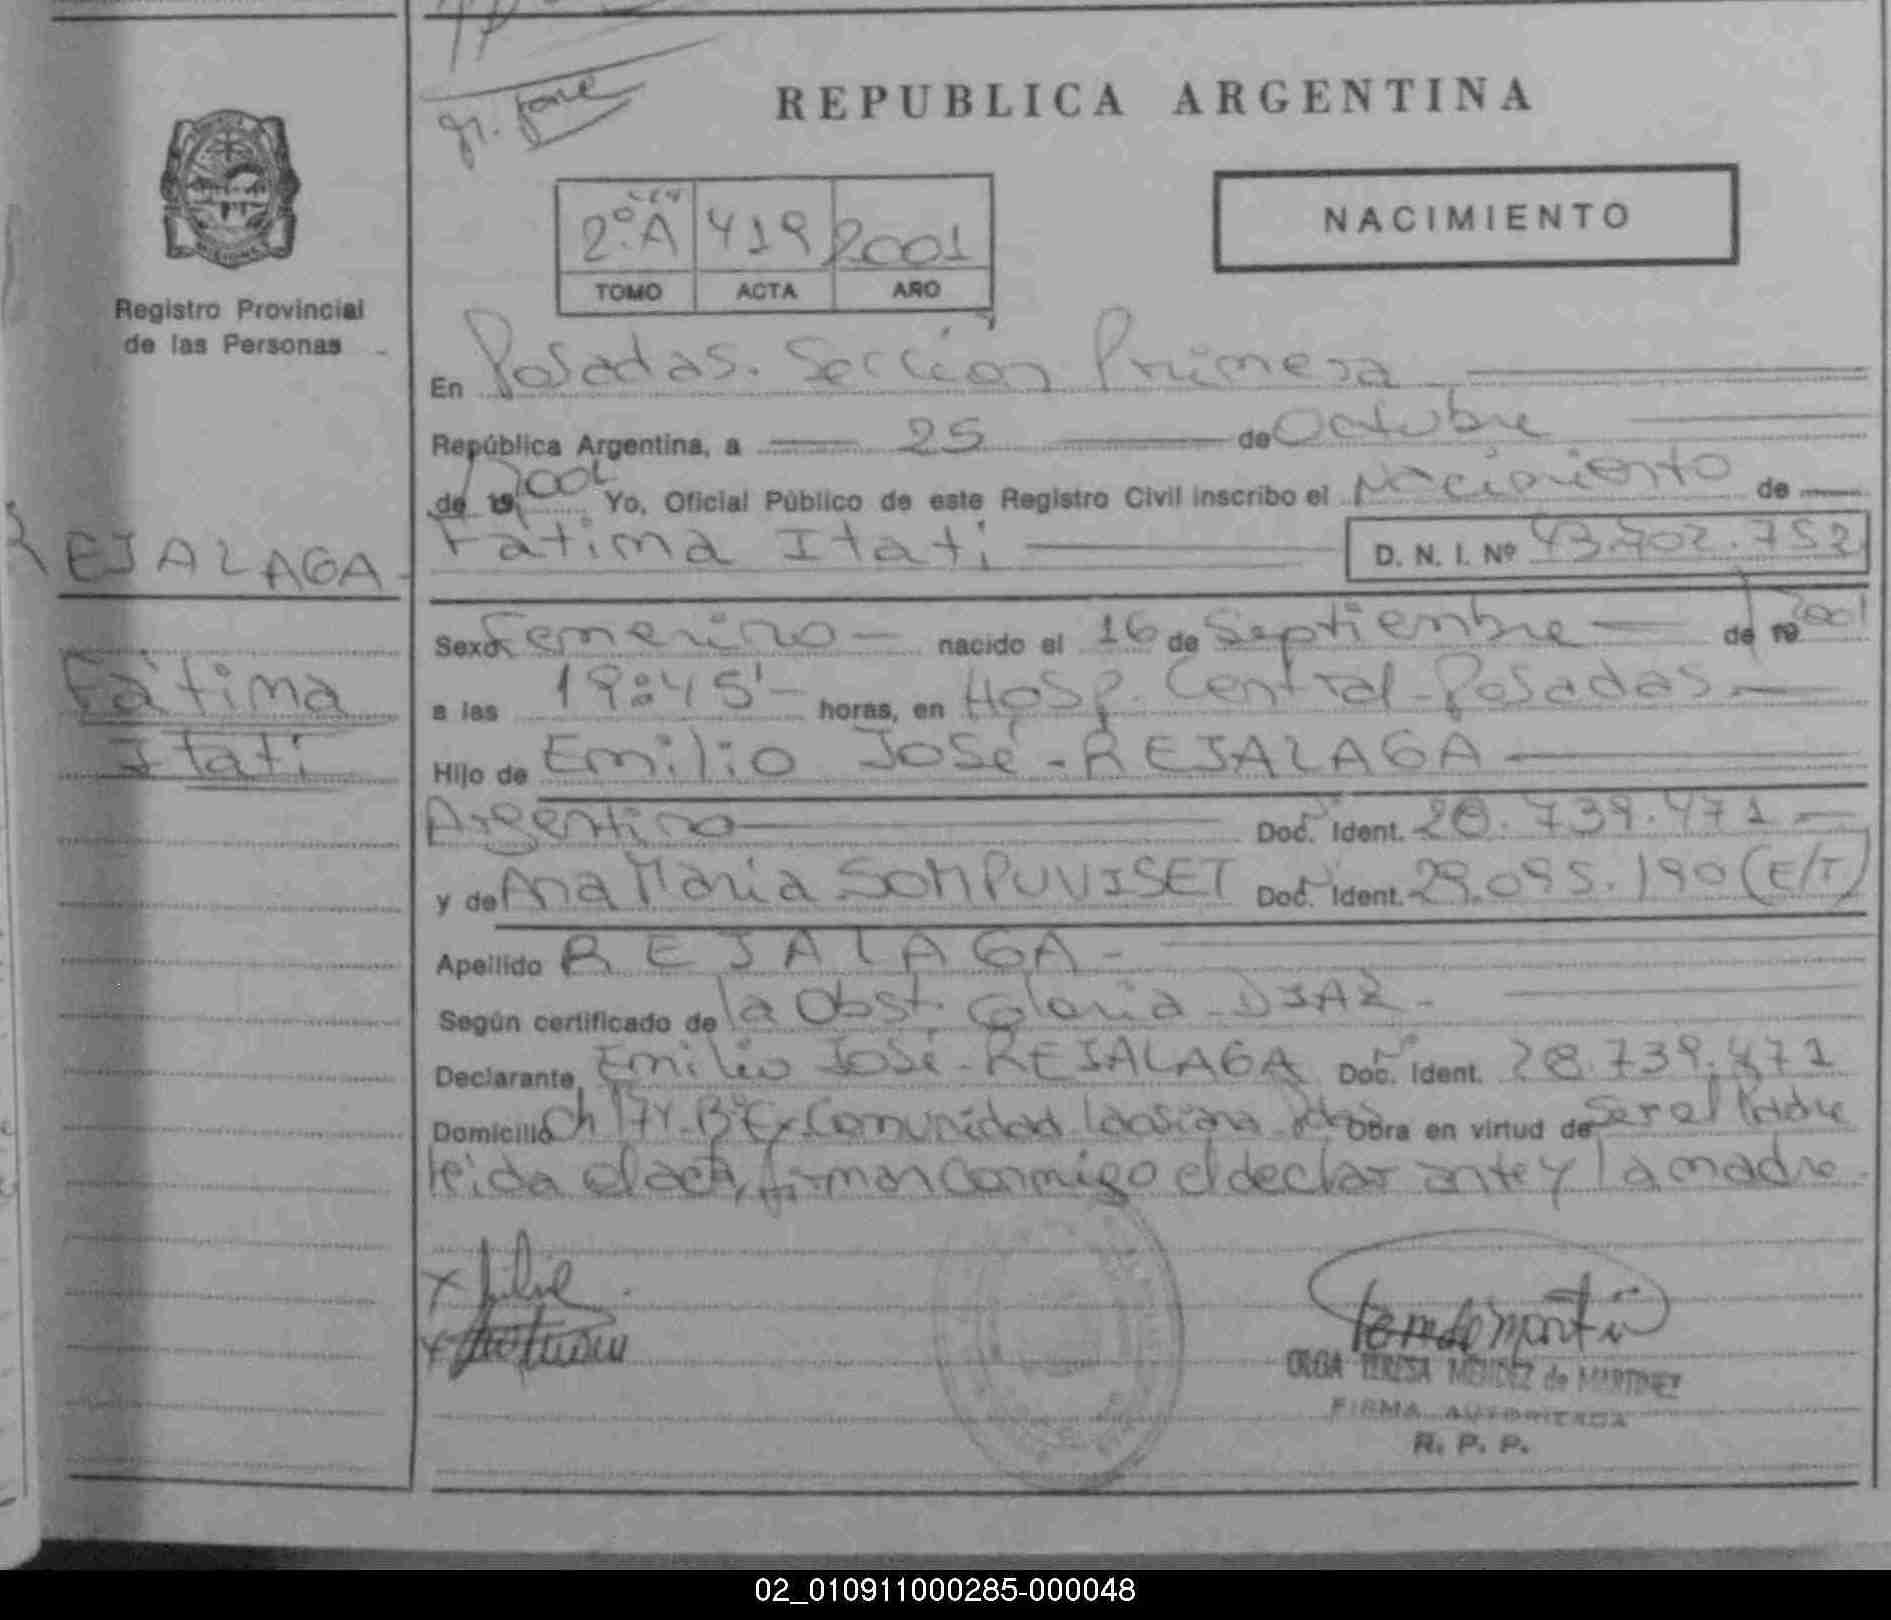 REPUBLICA ARGENTINA
NACIMIENTO
2º.A 419 2001
TOMO ACTA AÑO
Registro Provincial
de las Personas
En Posadas. Sección Primera
República Argentina, a 25 de Octubre
de 19 2001 Yo, Oficial Público de este Registro Civil inscribo el Nacimiento de
Fátima Itati D. N. I. Nº 43.702.752
REJALAGA
Fátima
Itati
Sexo Femenino nacido el 16 de Septiembre de 19 2001
a las 19:45' horas, en Hosp. Central-Posadas
Hijo de Emilio José-REJALAGA
Argentino Doc. Ident. 28.739.471
y de Ana María SOMPUVISET Doc. Ident. 29.095.190 (E/T)
Apellido REJALAGA-
Según certificado de la Obst. Gloria-DIAZ-
Declarante Emilio José-REJALAGA Doc. Ident. 28.739.471
Domicilio Ch 174-Bº Comunidad Laosiana Obra en virtud de Ser el Padre
leida el acta, firman conmigo el declarante y la madre.
OLGA TERESA MENDEZ de MARTINEZ
FIRMA AUTORIZADA
R. P. P.
02_010911000285-000048